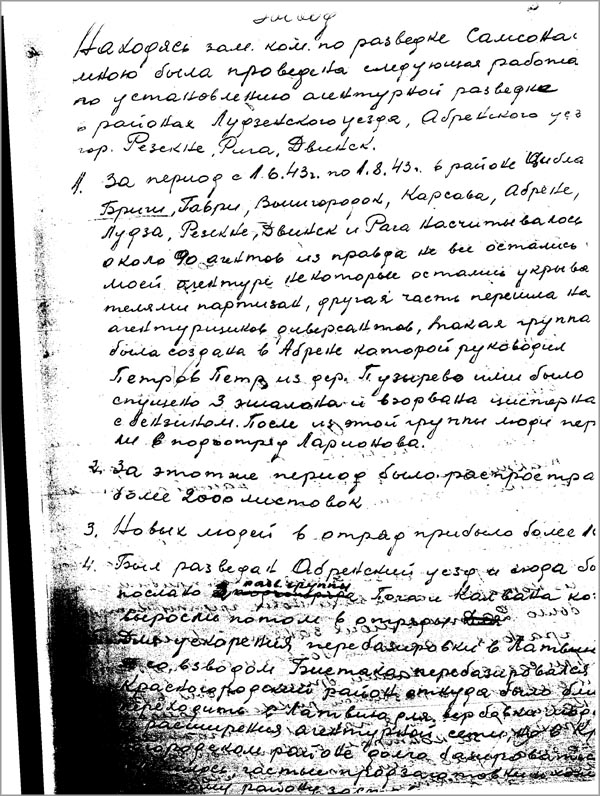 Находясь зам. ком. по разведке Самсона
мною была проведена следующая работа
по установлению агентурной разведке
в районах Лудзенского уезда, Абренского уез
гор. Резекне, Рига, Двинск.
1. За период с 1.6.43г. по 1.8.43г. в районе Цибла
Бриги, Гаври, Вышгородок, Карсава, Абрене,
Лудза, Резекне, Двинск и Рига насчитывалось
около 90 агентов из правда не все остались
моей агентуре некоторые остались укрыва
телями партизан, другая часть перешла на
агентурщиков диверсантов, такая группа
была создана в Абрене которой руководил
Петров Петр из дер. Пузырево ими было
спущено 3 эшалона и взорвана цистерна
с бензином. После из этой группы люди пер
ли в подотряд Ларионова.
2. За этот же период было распростра
более 2000 листовок
3. Новых людей в отряд прибыло более
4. Был разведан Абренский уезд и сюда бы
парт. группы
послано
выросли потом в отряды
Для ускорения перебазировки в Латвию
взводом перебазировался
Красногородский район откуда было бли
переходить в Латвию для вербовки
расширения агентурной сети но в Кр
городском районе долго базировать
частые
району